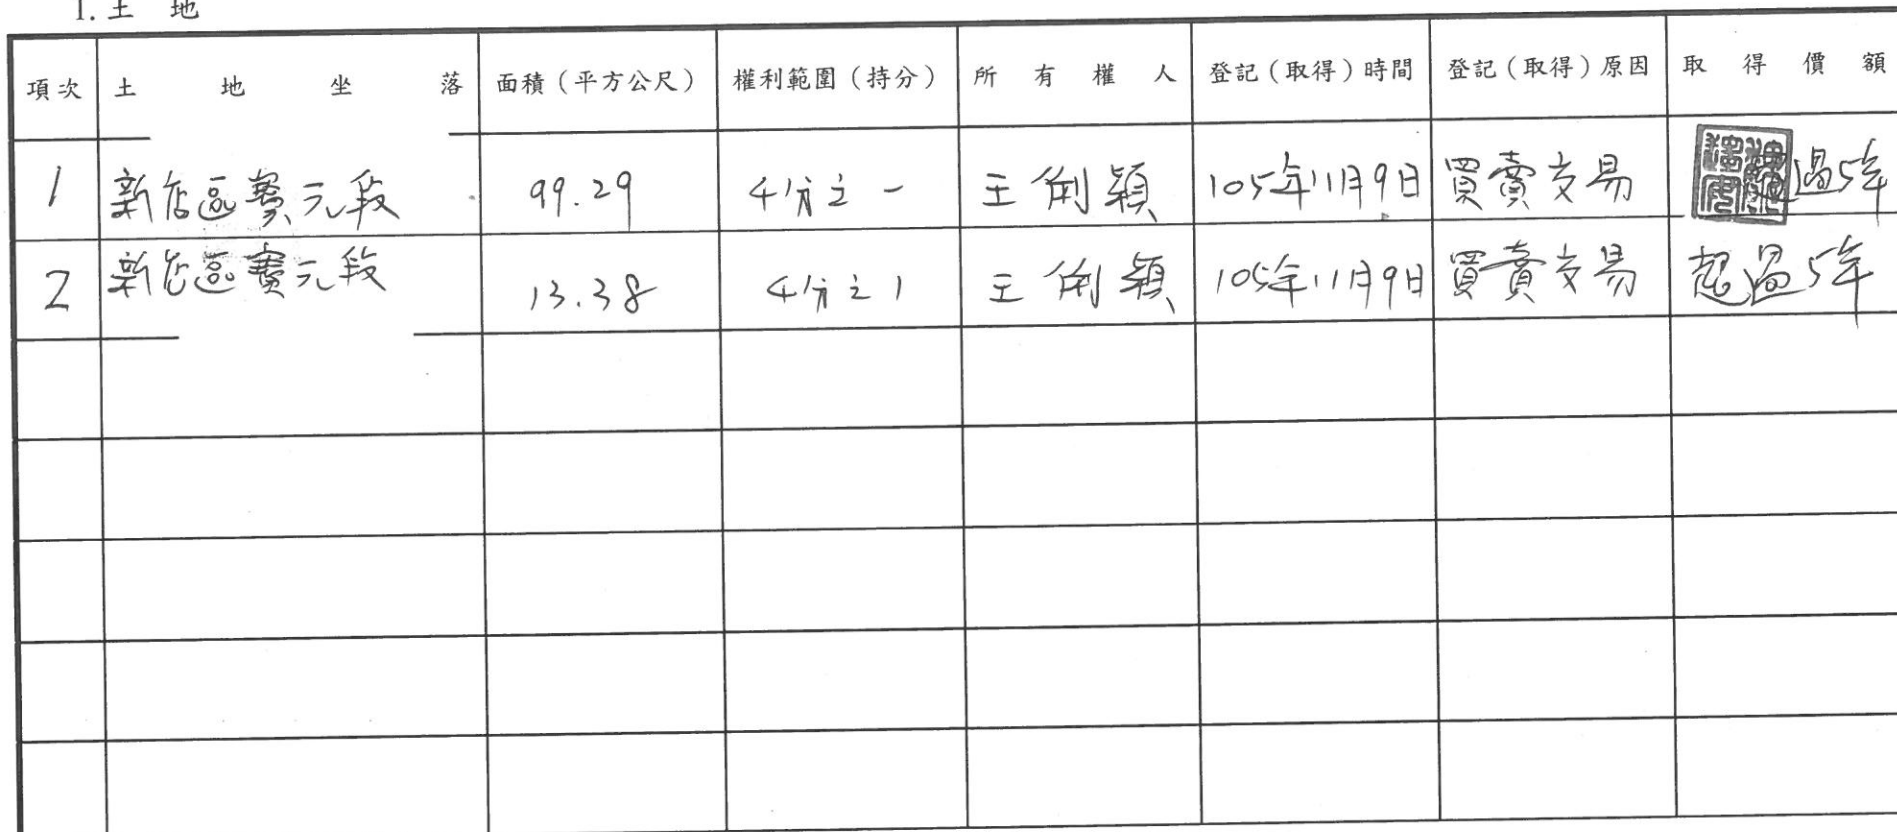 1. 土 地
項次 土地坐落 面積(平方公尺) 權利範圍(持分) 所有權人 登記(取得)時間 登記(取得)原因 取得價額
1 新店區寶元段 99.29 4分之一 王俐穎 105年11月9日 買賣交易 過5年
2 新店區寶元段 13.38 4分之1 王俐穎 105年11月9日 買賣交易 超過5年